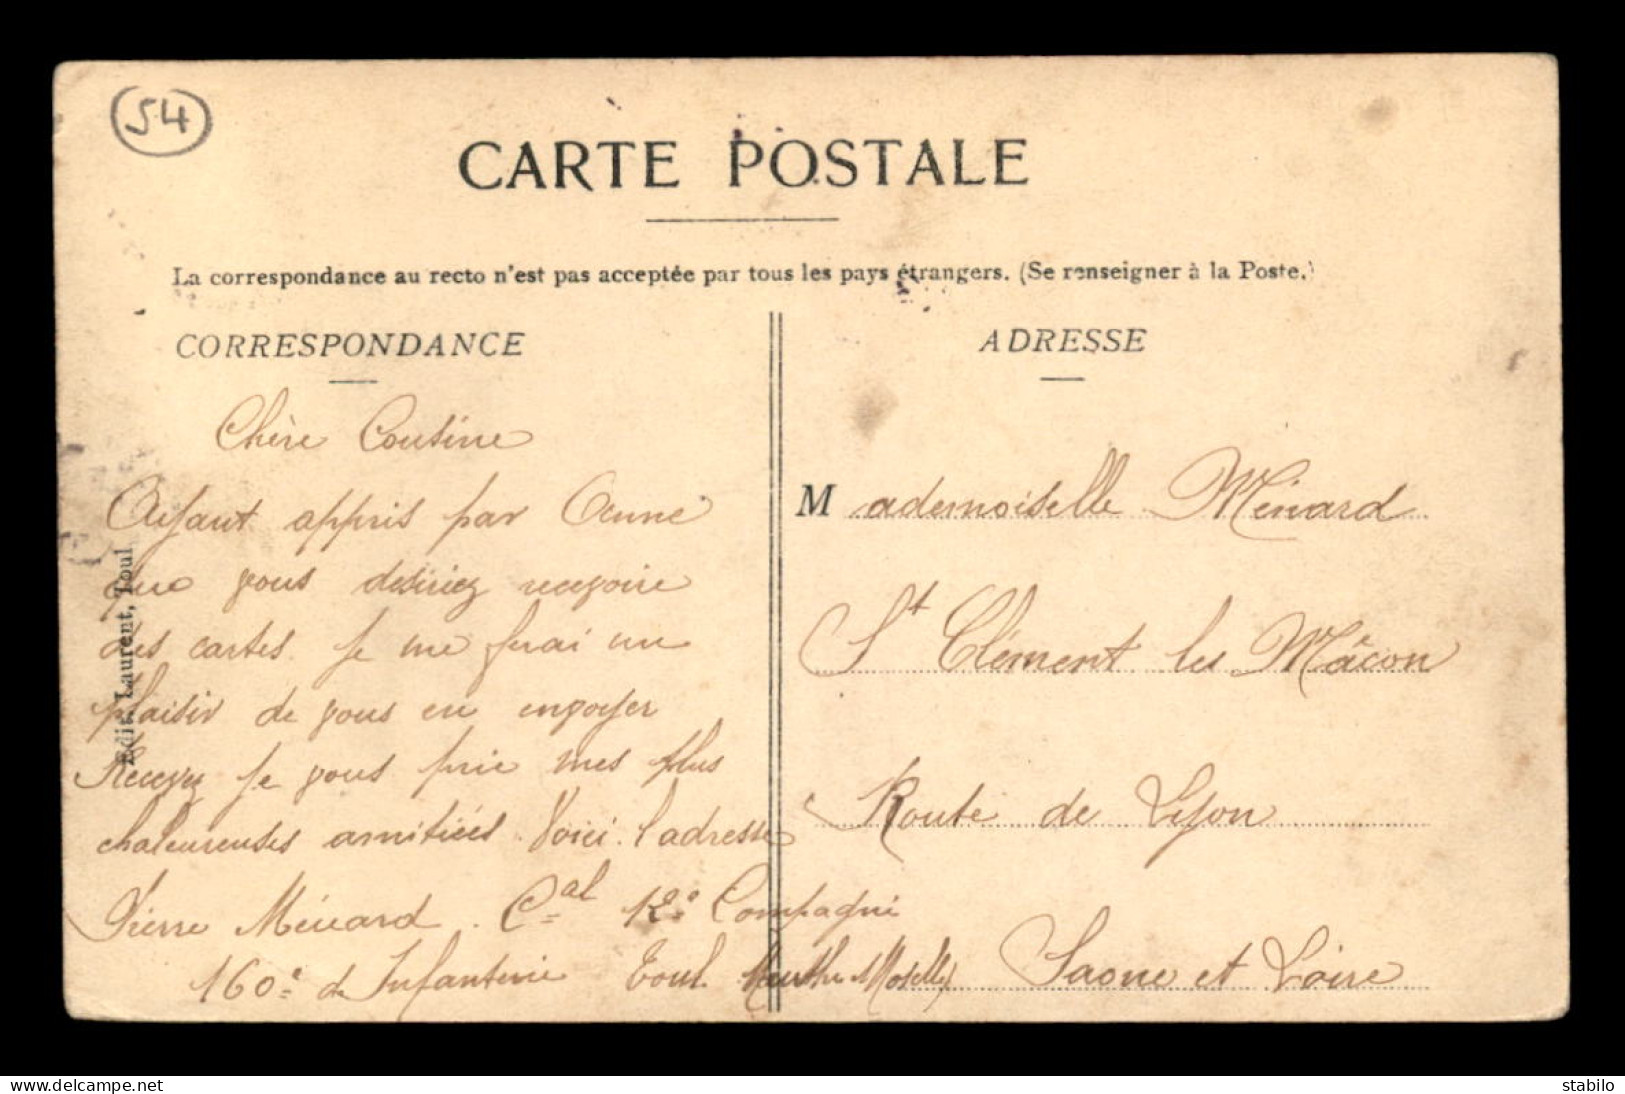 54
CARTE POSTALE
La correspondance au recto n'est pas acceptée par tous les pays étrangers. (Se renseigner à la Poste.)
CORRESPONDANCE
Chère Cousine
Ayant appris par Anne
que vous desiriez recevoire
des cartes je me ferai un
plaisir de vous en envoyer
Recevez je vous prie mes plus
chaleureuses amitiées. Voici l'adresse
Pierre Ménard. Cal 12e Compagnie
160e de Infanterie Toul Meurthe Moselle)
Edit. Laurent, Toul
ADRESSE
Mademoiselle Ménard
St Clément les Mâcon
Route de Lyon
Saone et Loire
www.delcampe.net
stabilo